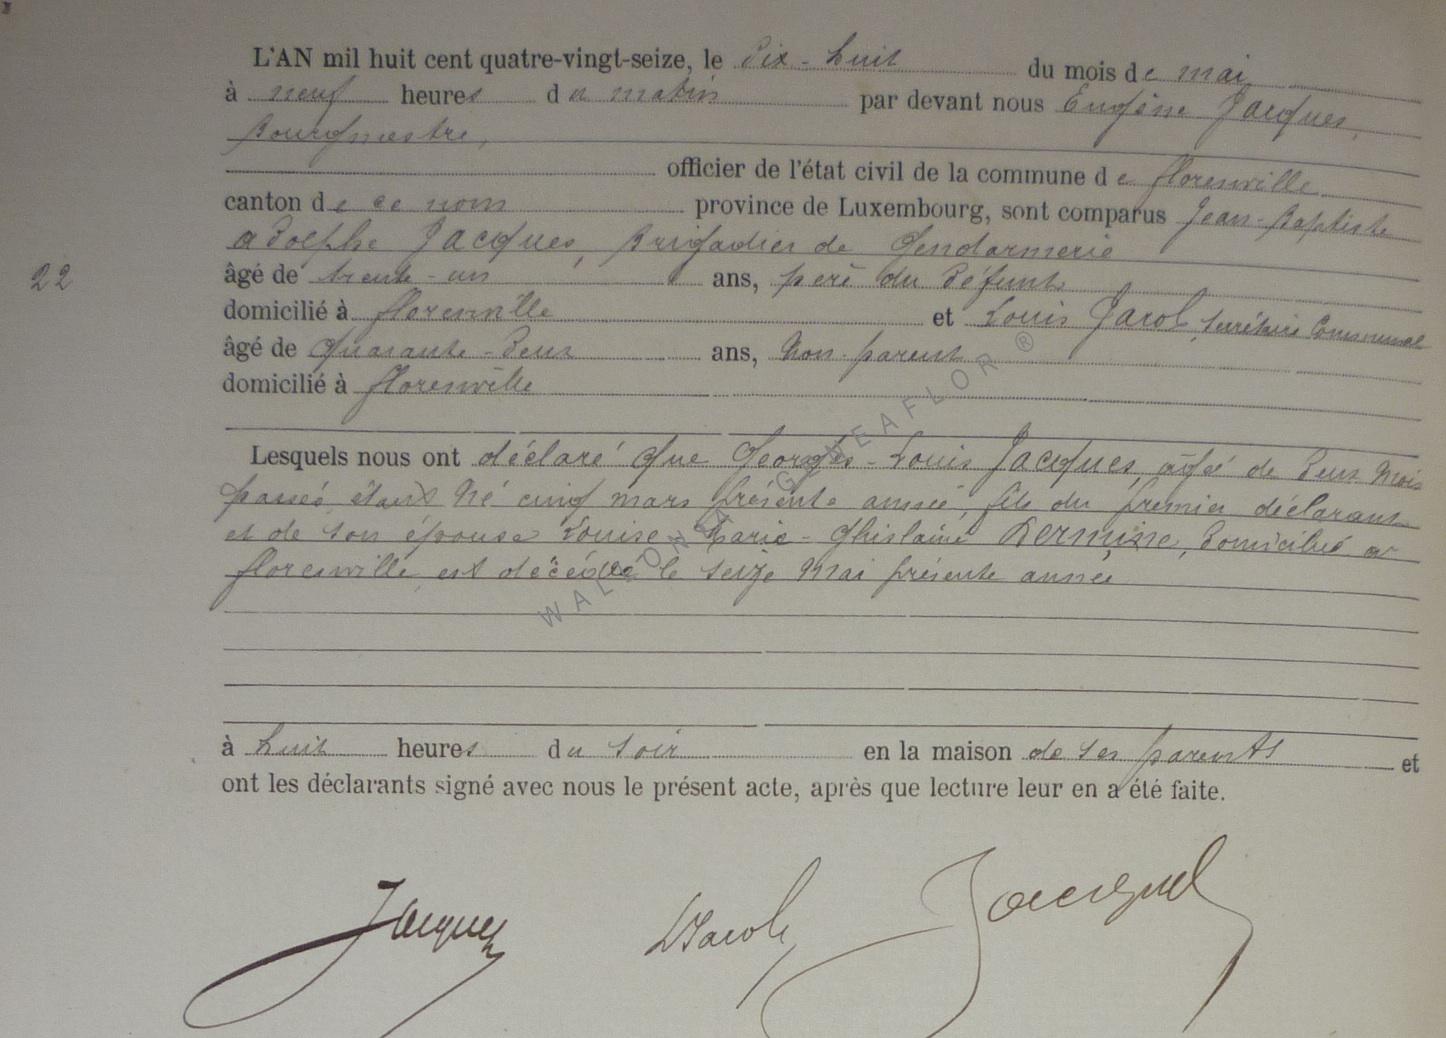 L'AN mil huit cent quatre-vingt-seize, le Dix-huit du mois de mai
à neuf heures du matin par devant nous Eugène Jacques,
Bourgmestre,
officier de l'état civil de la commune de florenville
canton de ce nom province de Luxembourg, sont comparus Jean-Baptiste
adolphe Jacques, Brigadier de Gendarmerie
22
âgé de trente-un ans, père du Défunt
domicilié à florenville et Louis Jacob, secrétaire Communal
âgé de quarante-Deux ans, Non parent
domicilié à florenville
Lesquels nous ont déclaré que Georges-Louis Jacques, âgé de Deux Mois
passés, étant Né cinq mars présente année, fils du premier déclarant
et de son épouse Louise-Marie-Ghislaine Dermine, Domiciliés a
florenville, est décédé le seize Mai présente année
WALLONIA GENEAFLOR ®
à huit heures du soir en la maison de ses parents et
ont les déclarants signé avec nous le présent acte, après que lecture leur en a été faite.
Jacques LJacob Jacques